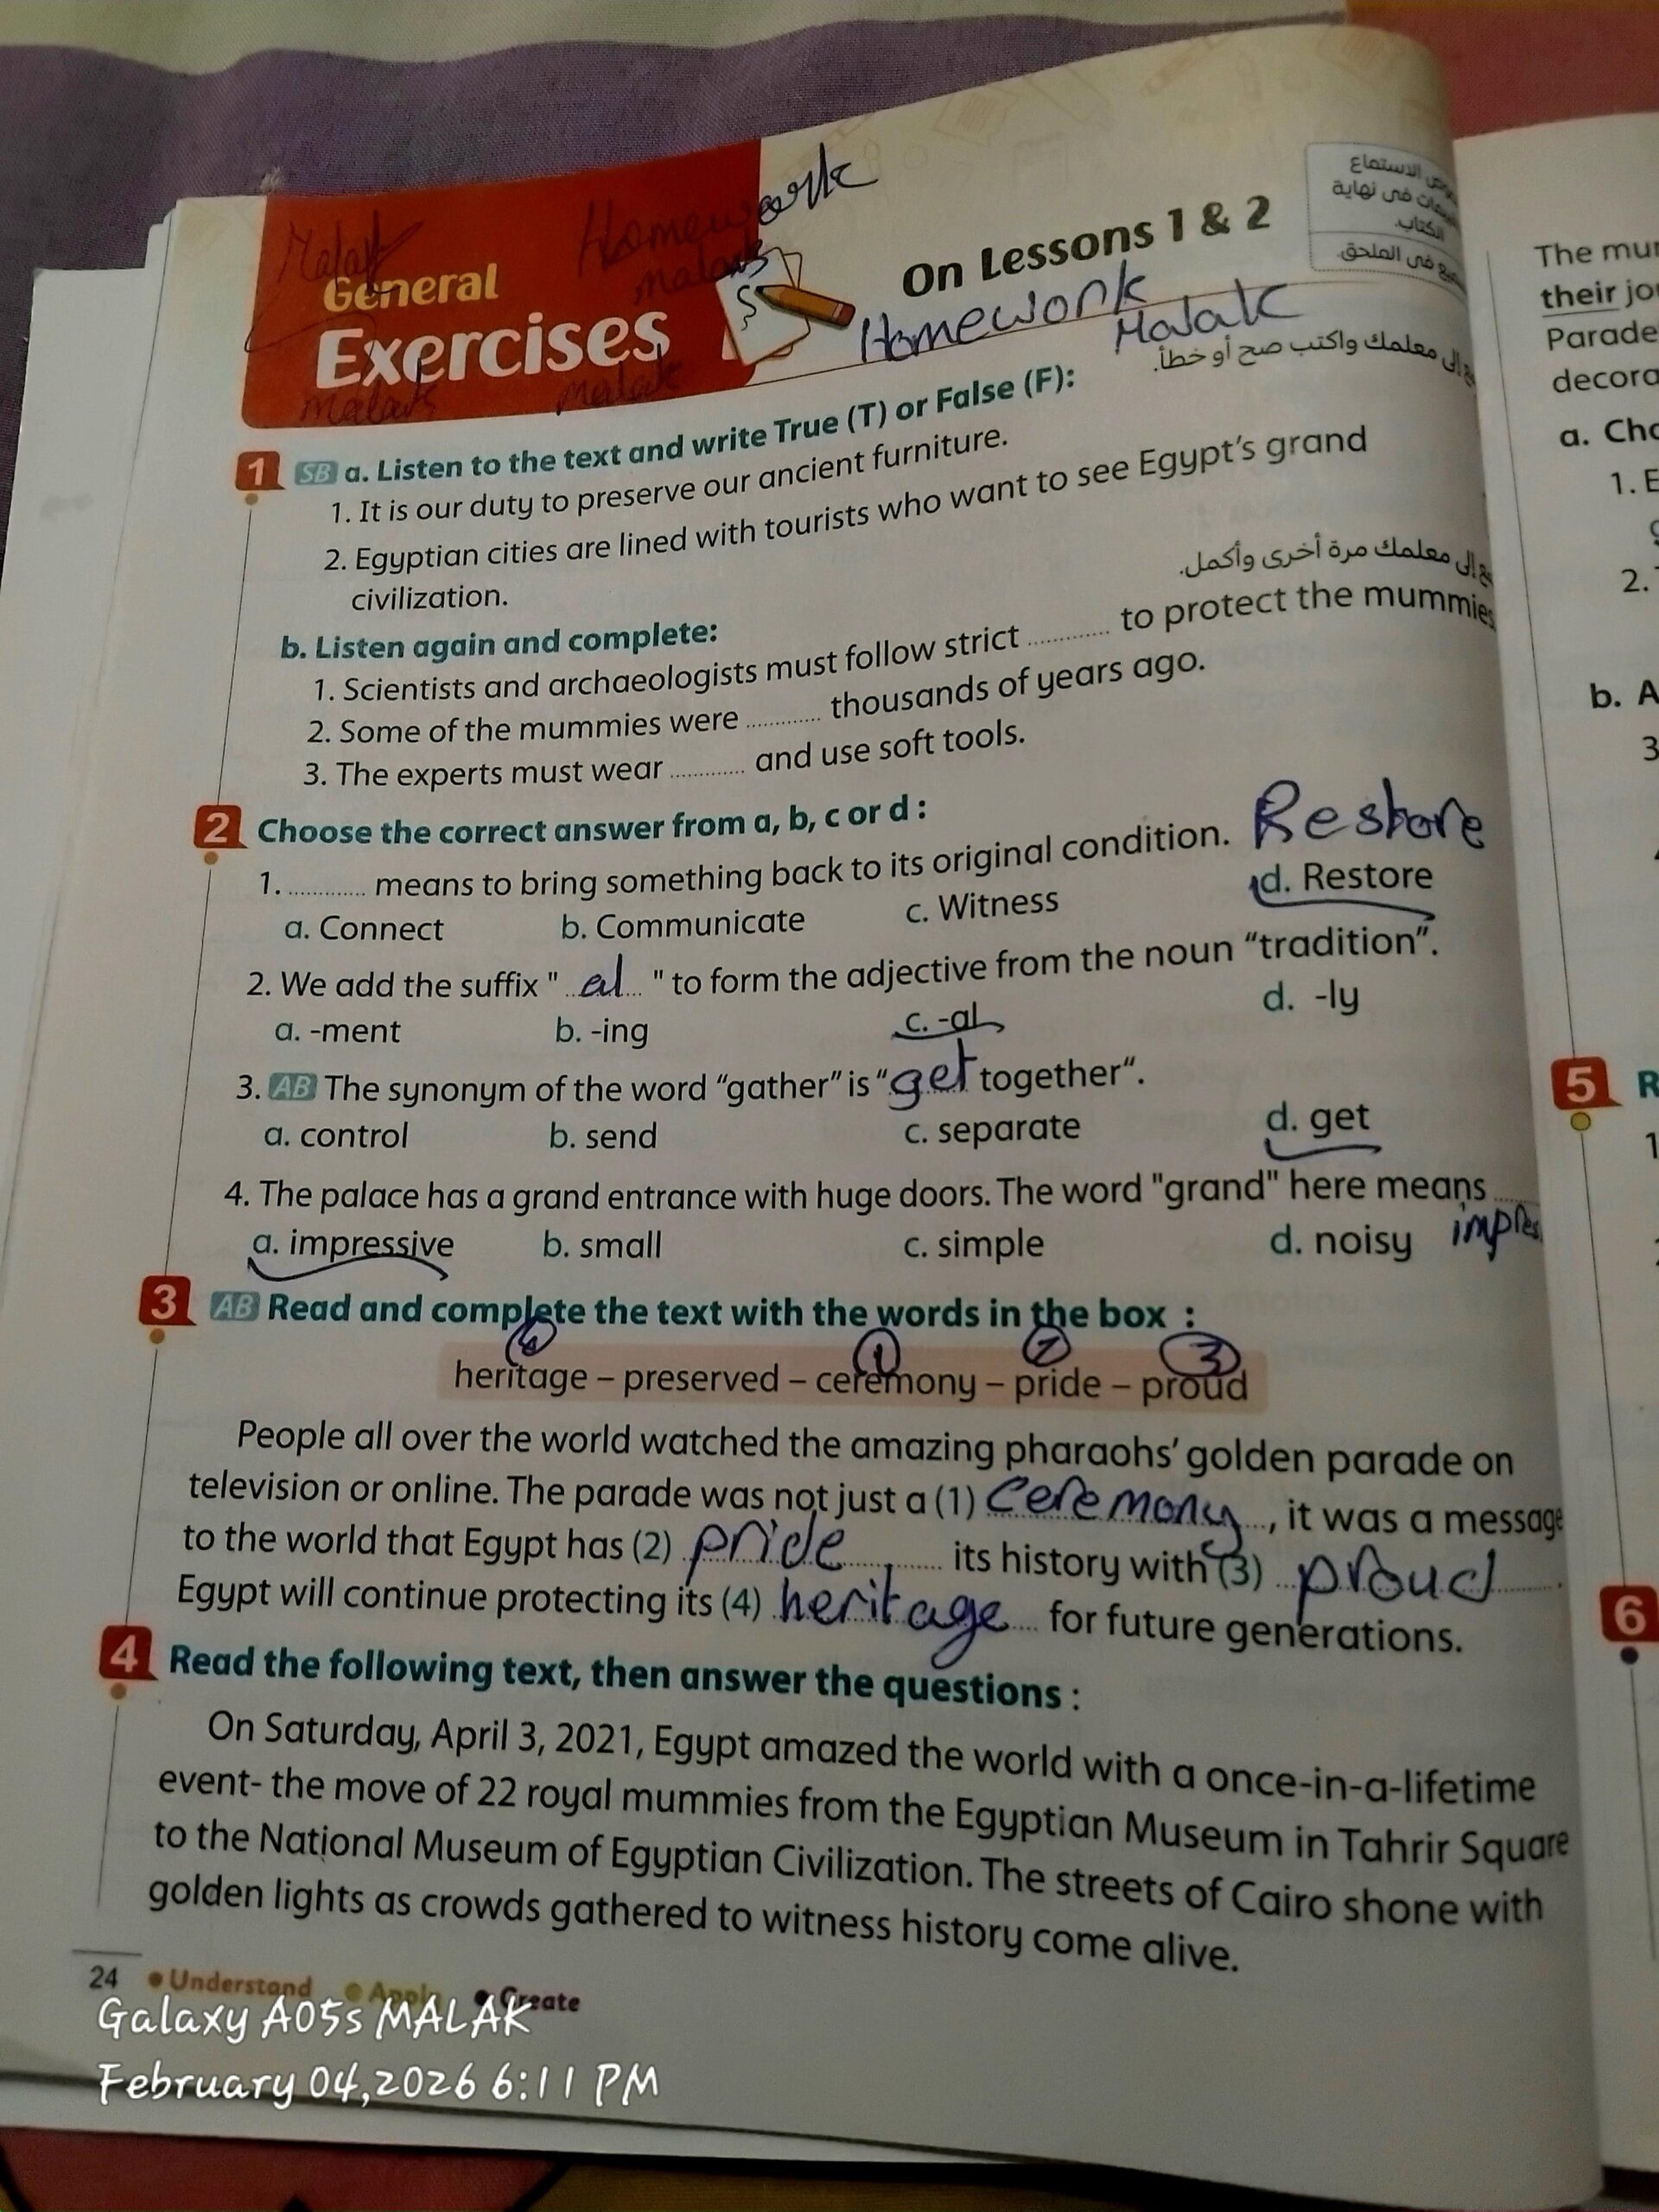 Malak
Homework
malak
General
Exercises
Malak
malak
On Lessons 1 & 2
Homework
Malak
الاستماع
فى نهاية
الكتاب.
فى الملحق.
إلى معلمك واكتب صح أو خطأ.
1 SB a. Listen to the text and write True (T) or False (F):
1. It is our duty to preserve our ancient furniture.
2. Egyptian cities are lined with tourists who want to see Egypt's grand
civilization.
إلى معلمك مرة أخرى وأكمل.
b. Listen again and complete:
1. Scientists and archaeologists must follow strict ............ to protect the mummies
2. Some of the mummies were ............ thousands of years ago.
3. The experts must wear ............ and use soft tools.
2 Choose the correct answer from a, b, c or d :
1. ............ means to bring something back to its original condition. Restore
a. Connect b. Communicate c. Witness d. Restore
2. We add the suffix " al " to form the adjective from the noun "tradition".
a. -ment b. -ing c. -al d. -ly
3. AB The synonym of the word "gather" is "get together".
a. control b. send c. separate d. get
4. The palace has a grand entrance with huge doors. The word "grand" here means ......
a. impressive b. small c. simple d. noisy impres
3 AB Read and complete the text with the words in the box :
4 1 2 3
heritage – preserved – ceremony – pride – proud
People all over the world watched the amazing pharaohs' golden parade on
television or online. The parade was not just a (1) ceremony, it was a message
to the world that Egypt has (2) pride its history with (3) proud.
Egypt will continue protecting its (4) heritage for future generations.
4 Read the following text, then answer the questions :
On Saturday, April 3, 2021, Egypt amazed the world with a once-in-a-lifetime
event- the move of 22 royal mummies from the Egyptian Museum in Tahrir Square
to the National Museum of Egyptian Civilization. The streets of Cairo shone with
golden lights as crowds gathered to witness history come alive.
24 • Understand • Apply • Create
Galaxy A05s MALAK
February 04,2026 6:11 PM
The mu
their jo
Parade
decora
a. Cho
1. E
2.
b. A
3
5 R
1
6